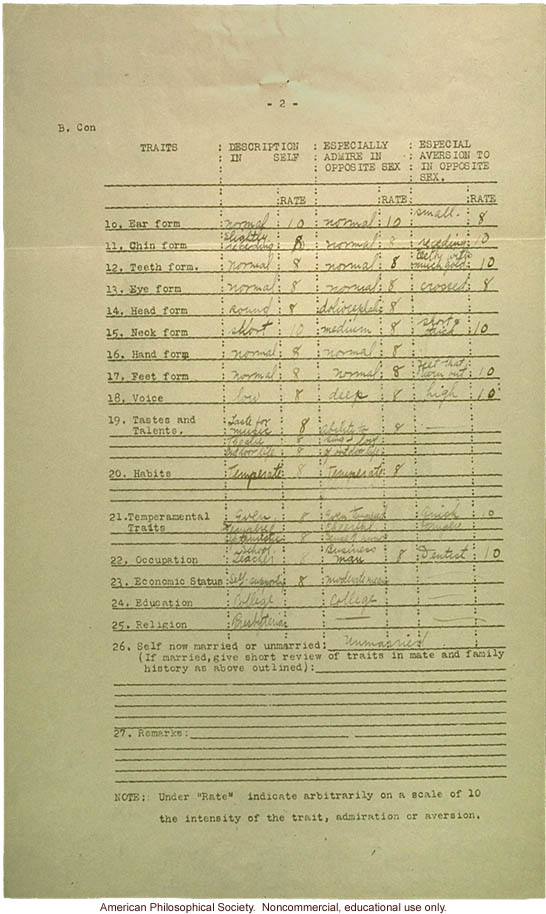 - 2 -
B. Con
TRAITS : DESCRIPTION : ESPECIALLY : ESPECIAL
IN SELF : ADMIRE IN : AVERSION TO
OPPOSITE SEX : IN OPPOSITE
SEX.
:RATE :RATE :RATE
10. Ear form normal 10 normal 10 small. 8
11. Chin form slightly receding 8 normal 8 receding 10
12. Teeth form. normal 8 normal 8 teeth with much gold 10
13. Eye form normal 8 normal 8 crossed 8
14. Head form round 8 8
15. Neck form short 10 medium 8 short & thick 10
16. Hand form normal 8 normal 8
17. Feet form normal 8 normal 8 feet that turn out 10
18. Voice low 8 deep 8 high 10
19. Tastes and Taste for
Talents. music 8 ability to 8
theatre 8
outdoor life 8 of outdoor life
20. Habits Temperate 8 Temperate 8
21. Temperamental Even 8 Even tempered 10
Traits tempered cheerful
8
22. Occupation School teacher 8 Business man 8 Dentist 10
23. Economic Status Self support 8 moderate
24. Education College College
25. Religion Presbyterian
26. Self now married or unmarried: Unmarried
(If married, give short review of traits in mate and family
history as above outlined):
27. Remarks:
NOTE: Under "Rate" indicate arbitrarily on a scale of 10
the intensity of the trait, admiration or aversion.
American Philosophical Society. Noncommercial, educational use only.